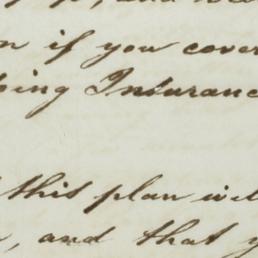 , and
n if you cover
ping Insurance
this plan will
, and that y